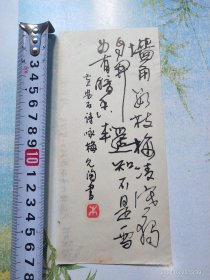 墙角数枝梅凌寒独
自开遥知不是雪
为有暗香来
王安石诗咏梅 书
3 4 5 6 7 8 9 10 1 2 3 4 5 6 7 8